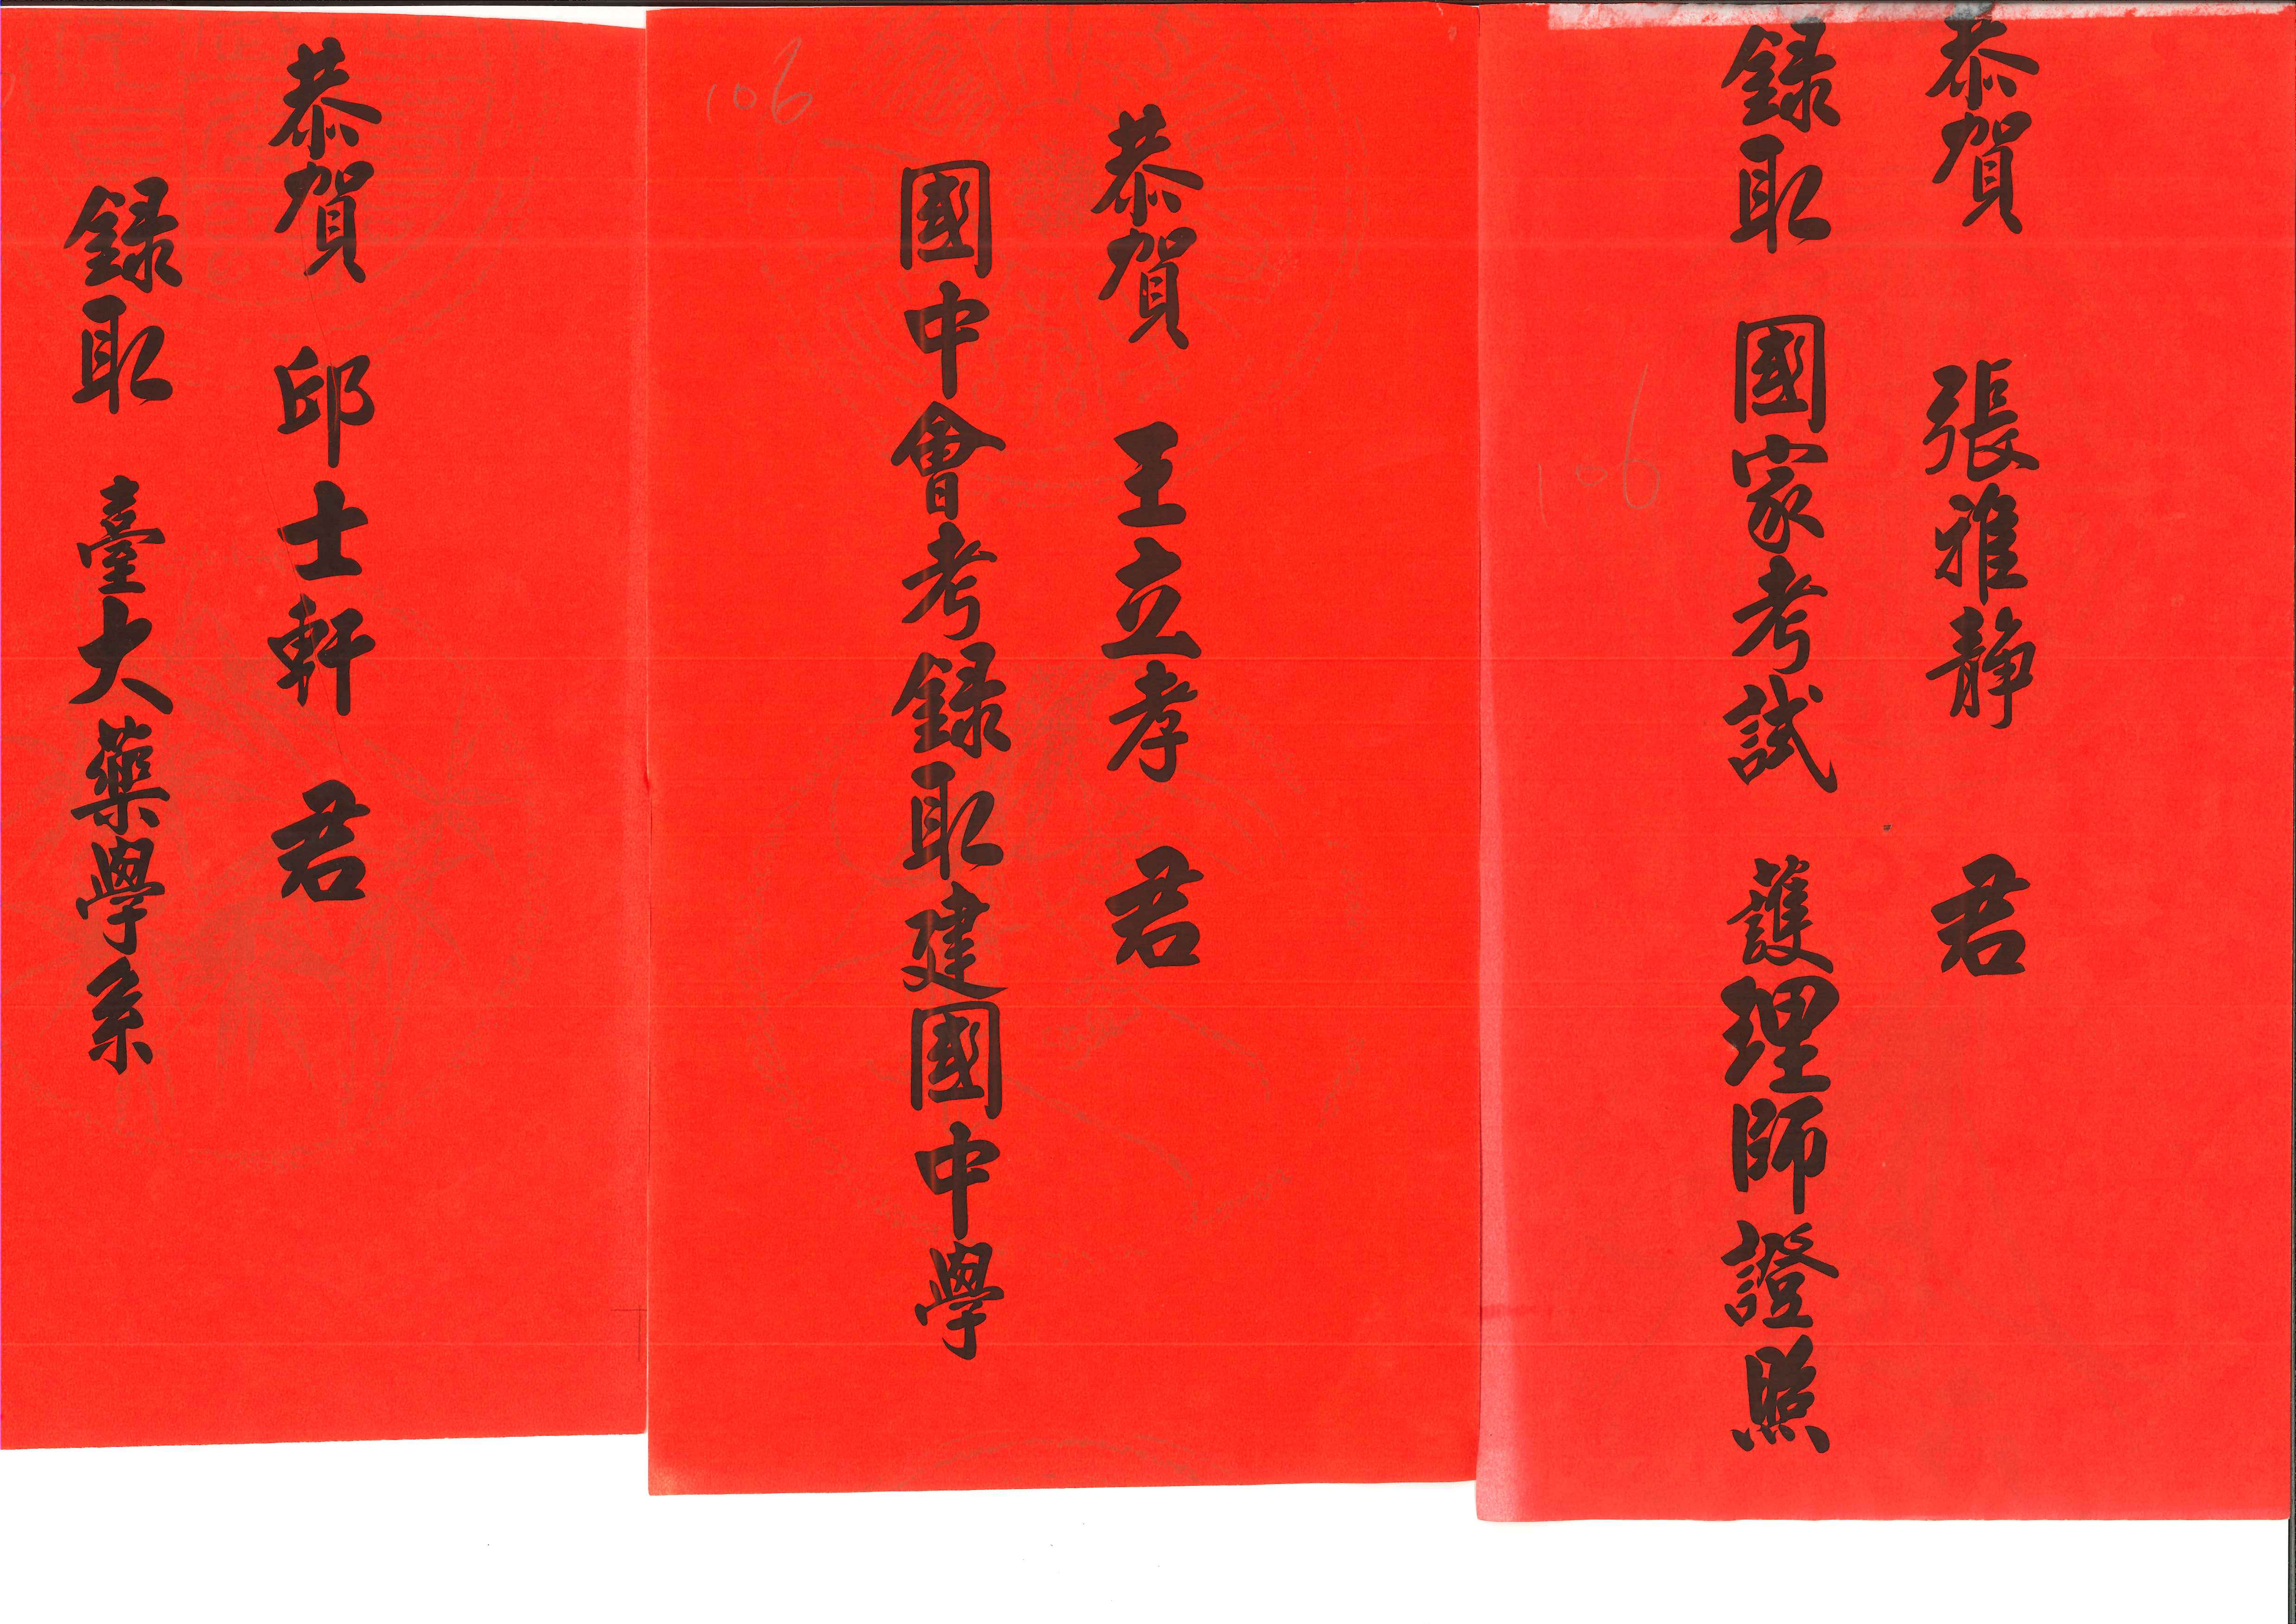 恭賀 張雅静 君
録取 國家考試 護理師證照
106
恭賀 王立孝 君
國中會考録取建國中學
106
恭賀 邱士軒 君
録取 臺大藥學系